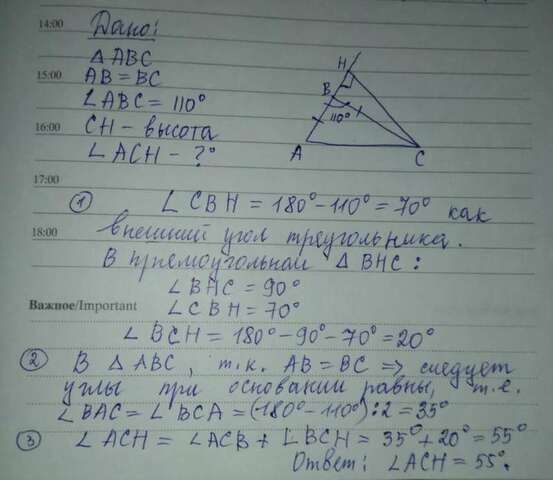 14:00 Дано:
Δ ABC
15:00 AB = BC
∠ABC = 110°
16:00 CH – высота
∠ACH – ?
H
B
110°
A
C
17:00
① ∠CBH = 180° – 110° = 70° как
18:00 внешний угол треугольника.
В прямоугольном Δ BHC:
∠BHC = 90°
Важное/Important ∠CBH = 70°
∠BCH = 180° – 90° – 70° = 20°
② В Δ ABC, т.к. AB = BC => следует
углы при основании равны, т.е.
∠BAC = ∠BCA = (180° – 110°) : 2 = 35°
③ ∠ACH = ∠ACB + ∠BCH = 35° + 20° = 55°
Ответ: ∠ACH = 55°.